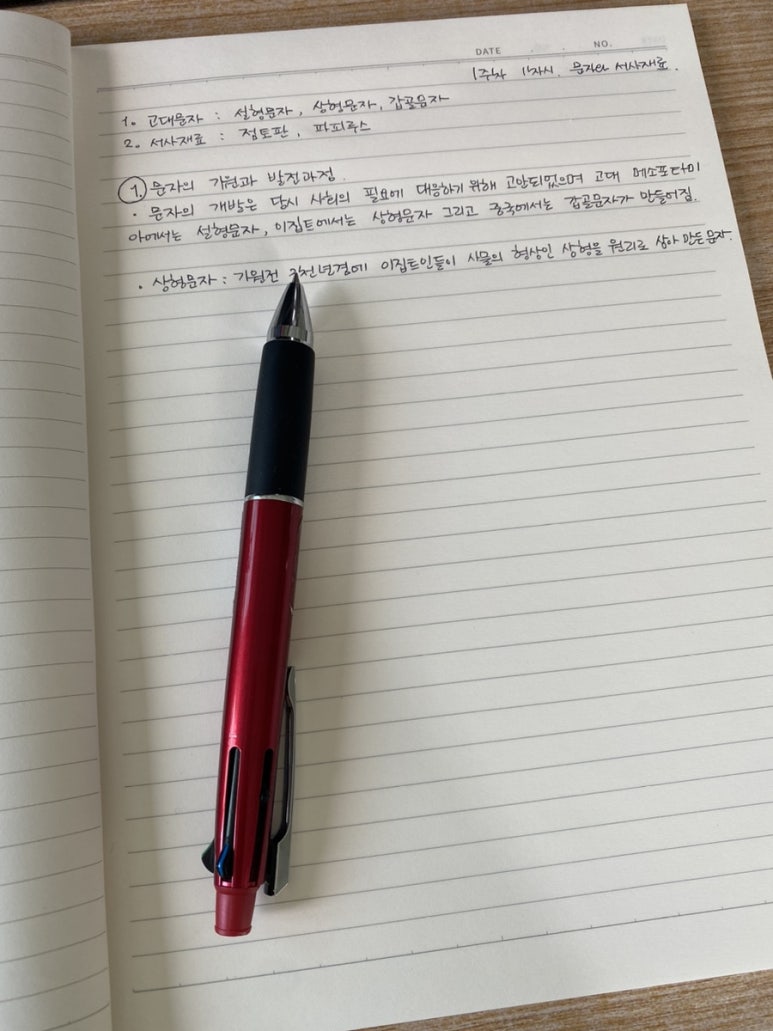 DATE . . NO.
1주차 1차시. 문자와 서사재료.
1. 고대문자 : 설형문자, 상형문자, 갑골문자
2. 서사재료 : 점토판, 파피루스
① 문자의 기원과 발전과정.
• 문자의 개발은 당시 사회의 필요에 대응하기 위해 고안되었으며 고대 메소포타미
아에서는 설형문자, 이집트에서는 상형문자 그리고 중국에서는 갑골문자가 만들어짐.
• 상형문자 : 기원전 년경에 이집트인들이 사물의 형상인 상형을 원리로 삼아 만든 문자.